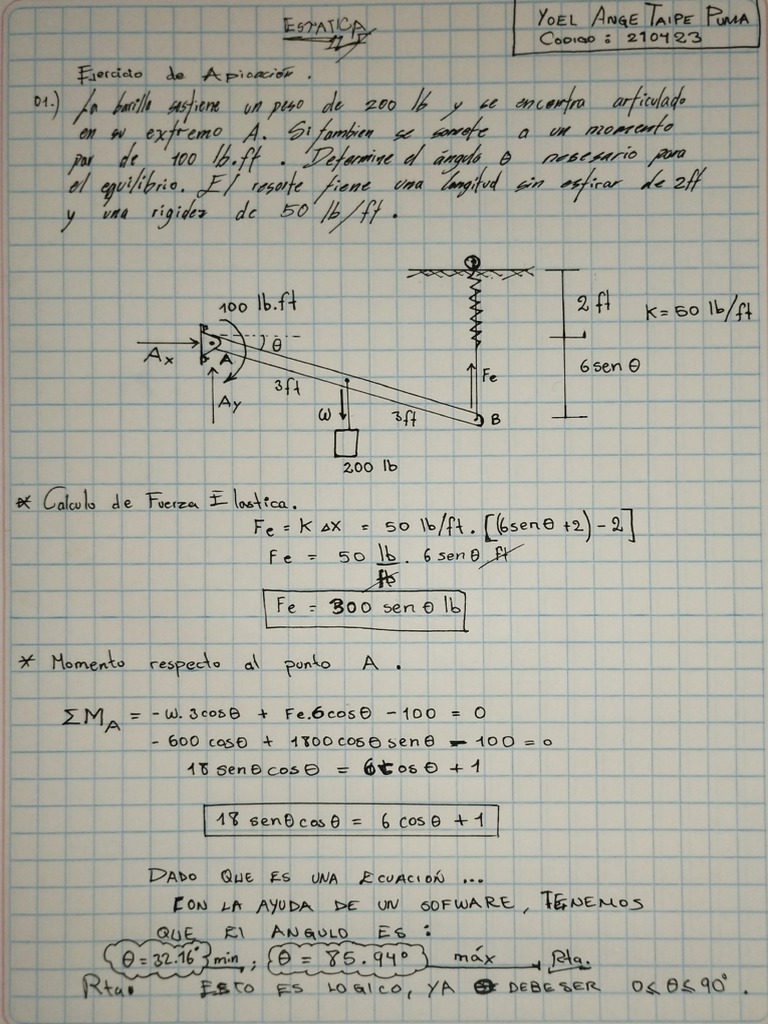 ESTATICA
YOEL ANGE TAIPE PUMA
CODIGO : 210423
Ejercicio de Apicación.
01.) La barilla sostiene un peso de 200 lb y se encontra articulado
en su extremo A. Si tambien se somete a un momento
par de 100 lb.ft . Determine el ángulo θ nesesario para
el equilibrio. El resorte tiene una longitud sin estirar de 2ft
y una rigidez de 50 lb/ft .
100 lb.ft
2 ft
K = 50 lb/ft
Ax
A
θ
3ft
Fe
6 sen θ
Ay
ω
3ft
B
200 lb
* Calculo de Fuerza Elastica.
Fe = K Δx = 50 lb/ft . [(6senθ +2) - 2]
Fe = 50 lb/ft . 6 senθ ft
Fe = 300 sen θ lb
* Momento respecto al punto A .
ΣMA = - ω. 3cosθ + Fe.6cosθ - 100 = 0
- 600 cosθ + 1800 cosθ senθ - 100 = 0
18 senθ cosθ = 6 cos θ + 1
18 senθ cosθ = 6 cosθ + 1
DADO QUE ES UNA ECUACIÓN ...
CON LA AYUDA DE UN SOFWARE, TENEMOS
QUE El ANGULO ES :
θ = 32.16° min ; θ = 85.94° máx Rta.
Rta. ESTO ES LOGICO, YA DEBE SER 0 ≤ θ ≤ 90° .